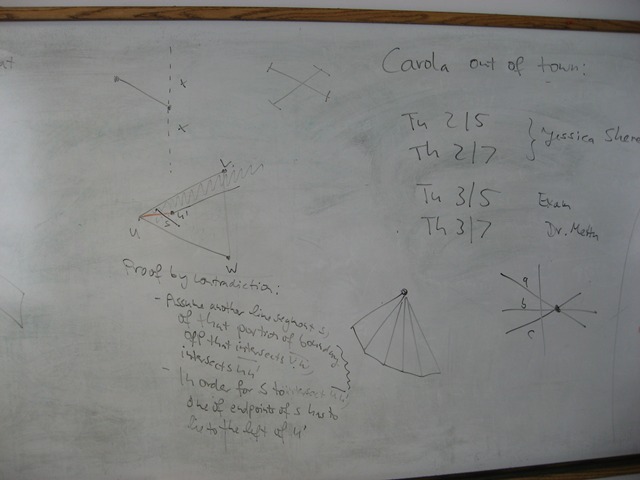 at
Carola out of town:
Tu 2/5
Th 2/7
Jessica Shere
Tu 3/5 Exam
Th 3/7 Dr. Mettu
x
x
V
u'
s
u
W
a
b
c
Proof by contradiction:
- Assume another line segment s
of that portion of boundary
off that intersects
intersects uu'
- In order for s to intersect uu'
one of endpoints of s has to
lie to the left of u'